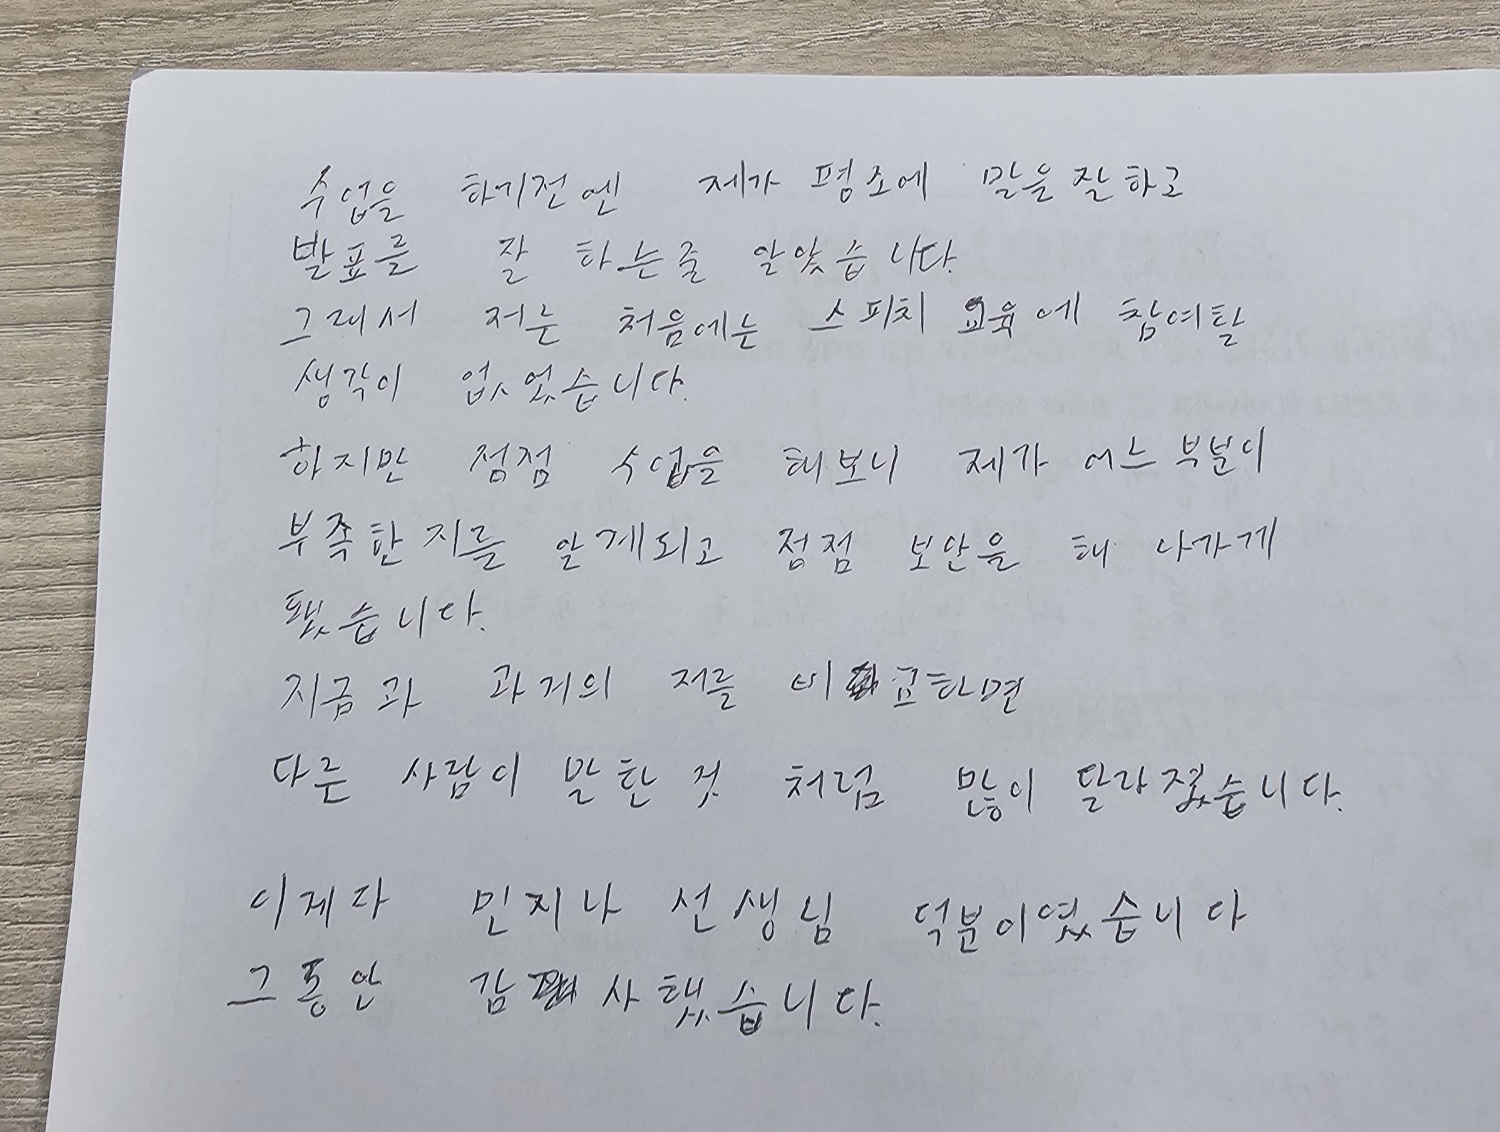 수업을 하기전엔 제가 평소에 말을 잘 하고
발표를 잘 하는줄 알았습니다.
그래서 저는 처음에는 스피치 교육에 참여할
생각이 없었습니다.
하지만 점점 수업을 해보니 제가 어느 부분이
부족한 지를 알게되고 점점 보안을 해 나가게
됐습니다.
지금과 과거의 저를 비교하면
다른 사람이 말한 것 처럼 많이 달라졌습니다.
이게다 민지나 선생님 덕분이였습니다
그동안 감사했습니다.